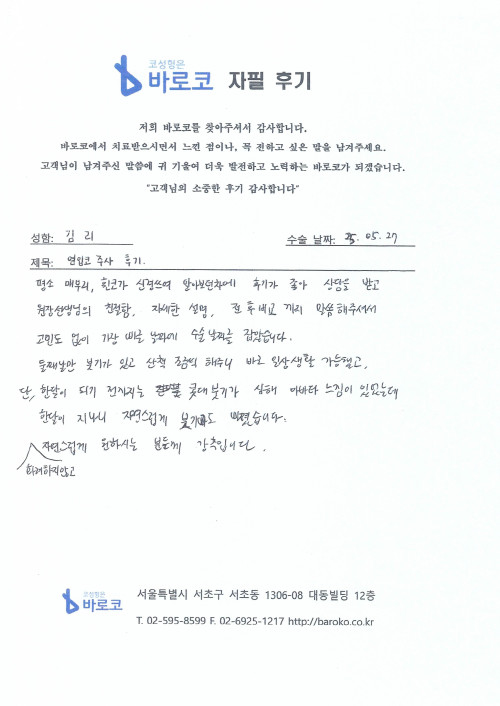 코성형은
바로코 자필 후기
저희 바로코를 찾아주셔서 감사합니다.
바로코에서 치료받으시면서 느낀 점이나, 꼭 전하고 싶은 말을 남겨주세요.
고객님이 남겨주신 말씀에 귀 기울여 더욱 발전하고 노력하는 바로코가 되겠습니다.
"고객님의 소중한 후기 감사합니다"
성함: 김 리 수술 날짜: 25. 05. 27
제목: 옆입코 주사 후기.
평소 매부리, 휜코가 신경쓰여 알아보던차에 후기가 좋아 상담을 받고
원장선생님의 친절함, 자세한 설명, 전후비교 까지 말씀해주셔서
고민도 없이 가장 빠른 날짜에 수술날짜를 잡았습니다.
둘째날만 붓기가 있고 산책 해주니 바로 일상생활 가능했고,
단, 한달이 되기 전까지는 콧대붓기가 심해 아바타 느낌이 있었는데
한달이 지나니 자연스럽게 붓기도 빠졌습니다.
자연스럽게 원하시는 분들께 강추입니다.
화려하지않고
코성형은
바로코
서울특별시 서초구 서초동 1306-08 대동빌딩 12층
T. 02-595-8599 F. 02-6925-1217 http://baroko.co.kr